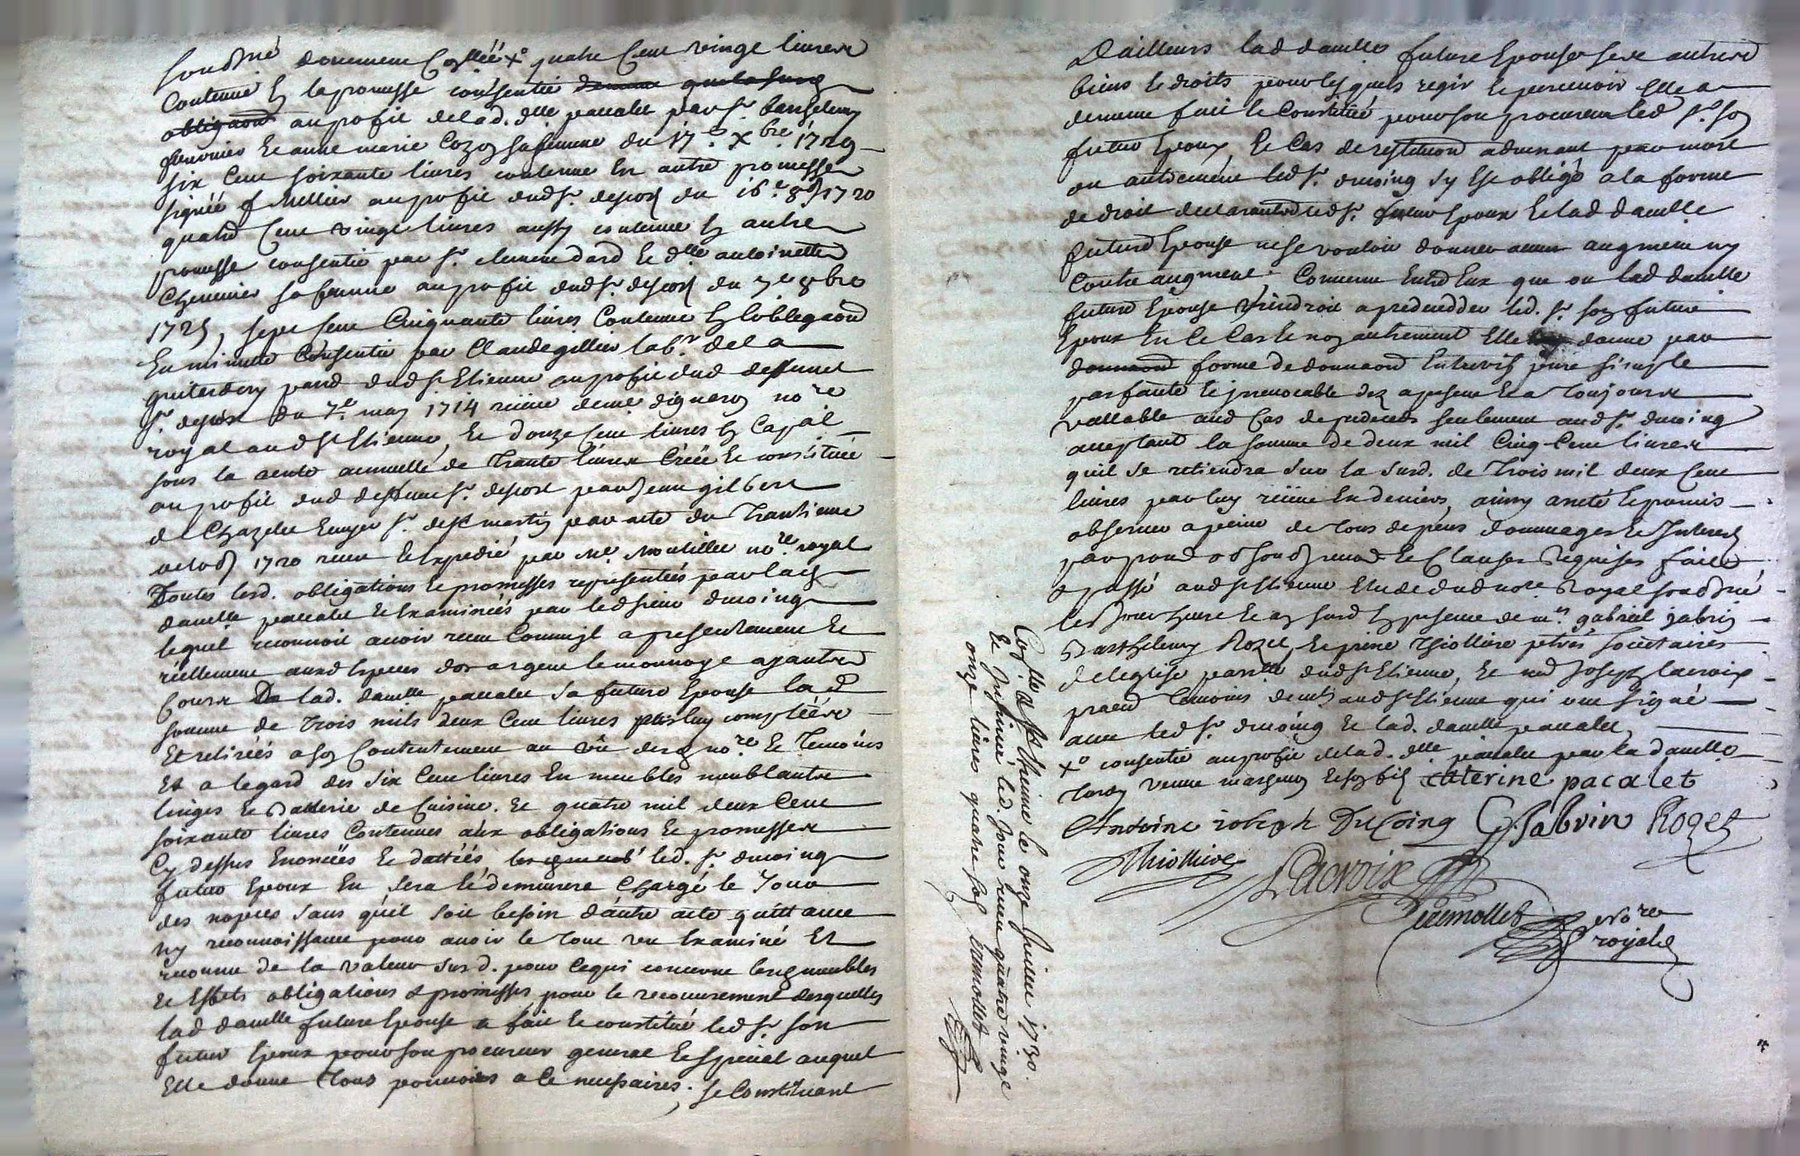 soubsigné donnement Collée x° quatre Cent vingt livres
Contenue En la promesse consentie
obligaõn au profit de lad. dlle pacalet par sr. Barthelemy
fournier Et anne marie Cozon sa femme du 17e. Xbre 1729
six Cent soixante livres contenue En autre promesse
signée f Mellier au profit dud sr. du 16e. 8bre 1720
quatre Cent vingt livres aussy contenue En autre
promesse consentie par sr. clement dard Et dlle antoinette
sa femme au profit dud sr. du 7e 8bre
1725, sept Cent Cinquante livres Contenue En l'obligaõn
En minutte Consentie par Claude gillier labr. de la
pard dud st Etienne au profit dud deffunct
sr. du 7e. may 1714 reçüe de me. digneron nore
royal aud st Etienne, Et douze Cent livres En Capal
sous la rente annuelle de Trante livres Créée Et constituée
au profit dud deffunt sr. par Jean gilbert
de Chazelet Ecuyer sr. de st martin par acte du Trantieme
1720 receu Et Expedié par Me. Montillet nore. royal
Toutes lesd. obligations Et promesses representées par lad
damlle pacalet Et Examinées par led sieur ducoing
lequel reconnoit avoir receu Comme il a presentement Et
réellement En Especes d'or argent Et monnoye ayant
Cours De lad. damlle pacalet sa future Epouse la de
somme de Trois mils deux Cent livres par luy comptée
Et retirées a son Contentement au vû desd nore. Et Temoins
Et a legard des six Cent livres En meubles meublants
linges Et Batterie de Cuisine. Et quatre mil deux Cent
soixante livres Contenues aux obligations Et promesses
Cy dessus Enoncées Et dattées led. sr. ducoing
futur Epoux En sera Et demeurera Chargé le Jour
des nopces sans qu'il soit besoin d'autre acte quittance
ny reconnoissance pour avoir le Tout vu Examiné Et
reconnu de la valeur susd. pour ce qui concerne lesd meubles
Et Effets obligations & promesses pour le recouvrement desquelles
lad damlle future Epouse a fait Et constitué led sr. son
futur Epoux pour son procureur general Et special auquel
Elle donne Tous pouvoirs a Ce necessaires. Se Constituant
D'ailleurs lad damlle future Epouse ses autres
biens Et droits pour lesquels regir Et percevoir Elle a
de meme fait Et Constitué pour son procureur led sr. son
futur Epoux Et Cas de restitution advenant par mort
ou autrement led sr. ducoing s'y Est obligé a la forme
de droit declarants led sr. futur Epoux Et lad damlle
future Epouse ne se vouloir donner aucun augment ny
Contre augment. Convenu Entre Eux que ou lad damlle
future Epouse viendroit a predeceder led. sr. son futur
Epoux En Ce Cas Et non autrement Elle donne par
forme de donnaõn Entrevifs pure simple
parfaite Et irrevocable dez apresent Et a Toujours
vallable aud Cas de predeces seulement aud sr. ducoing
acceptant la somme de deux mil Cinq Cent livres
quil se retiendra sur la susd. de Trois mil deux Cent
livres par luy reçüe En deniers, ainsy arreté Et promis
observer a peine de Tous depens dommages Et Interets
Et Clauses requises fait
& passé aud st Etienne Etude dud nore. Royal soubsigné
En presence de mrs. gabriel jabrin
Barthelemy Rozet, Et pierre Thiolliere pretres societaires
de leglise parrlle dud st Etienne, Et me Joseph lacroix
praen Temoins demts aud st Etienne qui ont signé
avec led sr. ducoing Et lad. damlle pacalet,
x° consentie au profit de lad. dlle. pacalet par la damlle
veuve Et son fils catterine pacalet
Antoine ioseph DuCoing G Jabrin Rozet
Thiolliere
Lacroix
Gremollet Nore
royal
Conlle a st Etienne le onze Juillet 1730.
Et Insinué led. Jour receu quatre vingt
onze livres quatre sols Gremollet